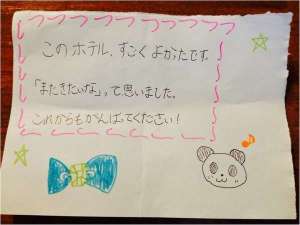 このホテル、すごくよかったです。
「またきたいな」って思いました。
これからもがんばってください！